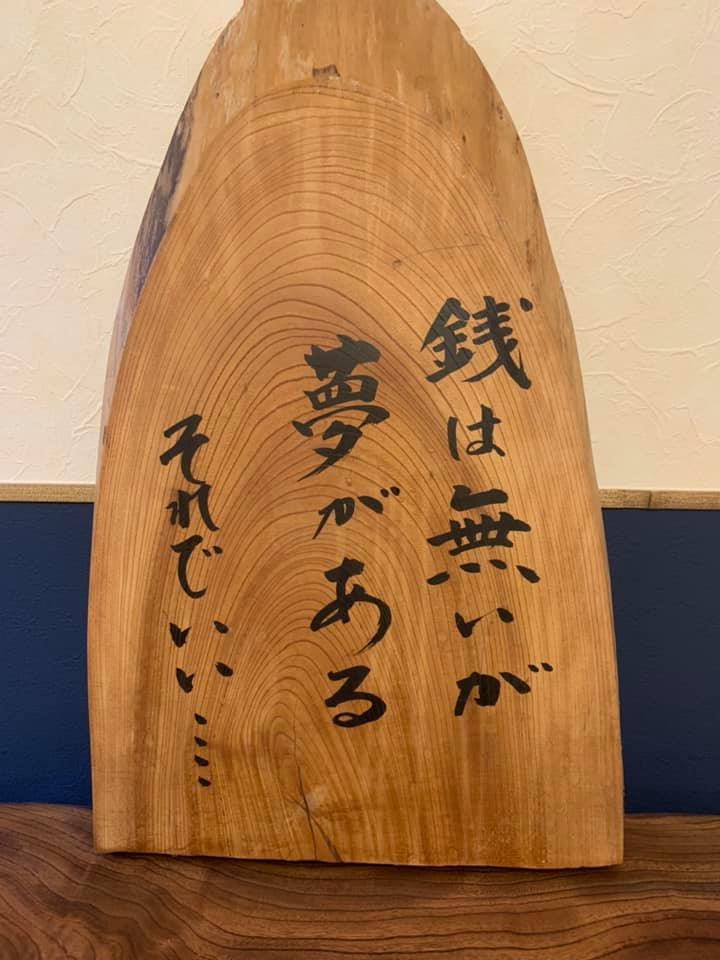 銭は無いが
夢がある
それでいい……